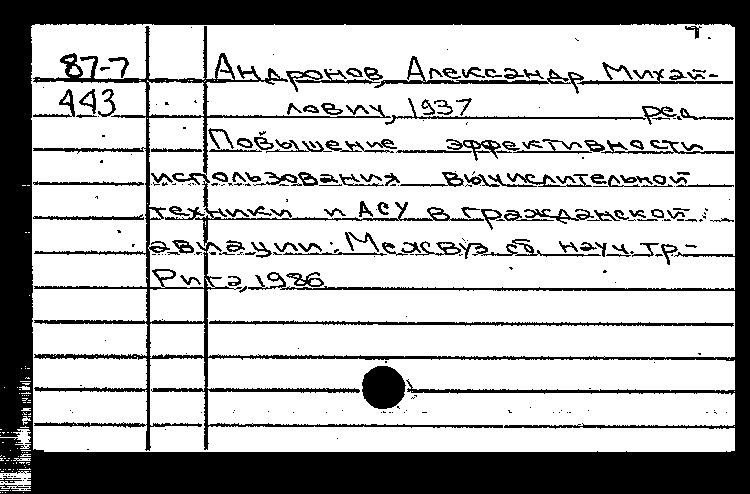 87-7 Андронов, Александр Михай-
443 лович, 1937 ред.
Повышение эффективности
использования вычислительной
техники и АСУ в гражданской
авиации: Межвуз. сб. науч. тр.-
Рига, 1986